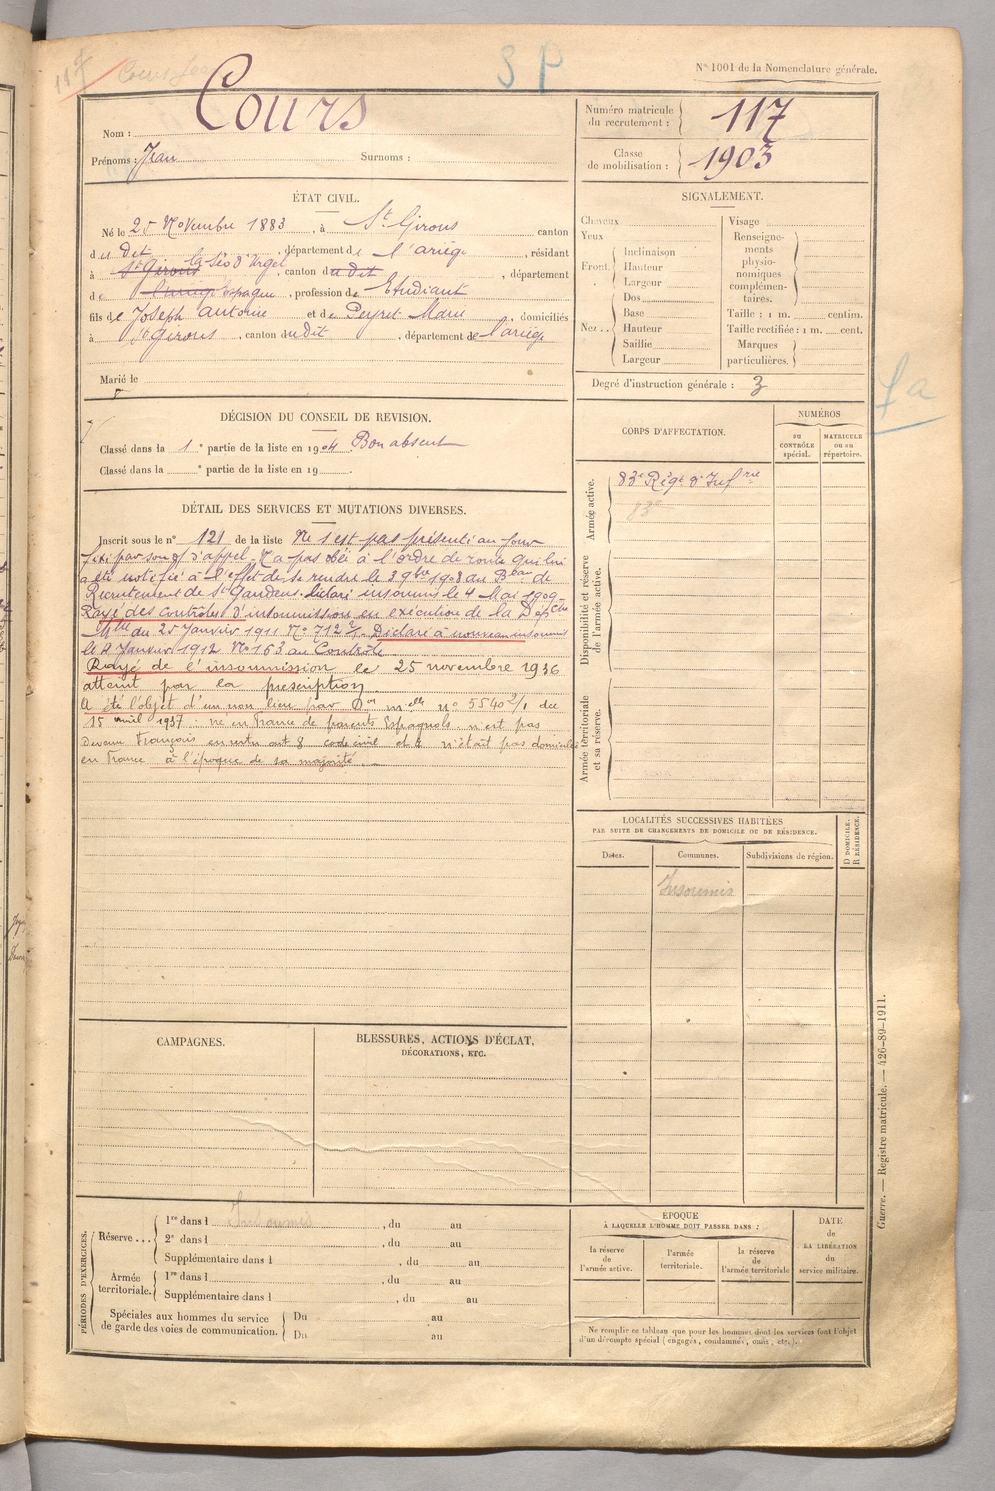 117
Cours Jean
S P
N° 1001 de la Nomenclature générale.
Nom : Cours
Prénoms : Jean Surnoms :
Numéro matricule du recrutement : 117
Classe de mobilisation : 1903
ÉTAT CIVIL.
Né le 25 Novembre 1883, à St Girons canton
du dit, département de l'ariège, résidant
à St Girons la Séo d'Urgel, canton du dit, département
de l'ariège Espagne, profession de Etudiant
fils de Joseph Antoine et de Peyret Marie, domiciliés
à St Girons, canton du dit, département de l'ariège
Marié le
SIGNALEMENT.
Cheveux
Yeux
Front
Inclinaison
Hauteur
Largeur
Nez
Dos
Base
Hauteur
Saillie
Largeur
Visage
Renseigne-
ments
physio-
nomiques
complémen-
taires.
Taille : 1 m. centim.
Taille rectifiée : 1 m. cent.
Marques
particulières.
Degré d'instruction générale : 3
DÉCISION DU CONSEIL DE REVISION.
Classé dans la 1e partie de la liste en 1904 Bon absent
Classé dans la e partie de la liste en 19 .
DÉTAIL DES SERVICES ET MUTATIONS DIVERSES.
Inscrit sous le n° 121 de la liste Ne s'est pas présenté au jour
fixé par son d'appel. N'a pas obéi à l'ordre de route qui lui
a été notifié à l'effet de se rendre le 3 9bre 1908 au Beau de
Recrutement de St Gaudens. Déclaré insoumis le 4 Mai 1909.
Rayé des contrôles d'insoumission en exécution de la Dépche
Mlle du 25 Janvier 1911 N° 712 2/1. Déclaré à nouveau insoumis
le 8 Janvier 1912 N° 163 au Contrôle
Rayé de l'insoumission le 25 novembre 1936
atteint par la prescription
A été l'objet d'un non lieu par Don melle n° 5540 2/1 du
15 avril 1937 : né en France de parents Espagnols n'est pas
Devenu Français en vertu art 8 code civil et n'était pas domicilié
en France à l'époque de sa majorité.
CORPS D'AFFECTATION.
NUMÉROS
AU CONTRÔLE spécial.
MATRICULE ou au répertoire.
Armée active.
83e Régt d'Infrie
83e
Disponibilité et réserve de l'armée active.
Armée territoriale et sa réserve.
LOCALITÉS SUCCESSIVES HABITÉES
PAR SUITE DE CHANGEMENTS DE DOMICILE OU DE RÉSIDENCE.
Dates.
Communes.
Subdivisions de région.
D DOMICILE.
R RÉSIDENCE.
Insoumis
CAMPAGNES.
BLESSURES, ACTIONS D'ÉCLAT,
DÉCORATIONS, ETC.
PÉRIODES D'EXERCICES.
Réserve ...
1re dans l Insoumis, du au
2e dans l , du au
Supplémentaire dans l , du au
Armée territoriale.
1re dans l , du au
Supplémentaire dans l , du au
Spéciales aux hommes du service
de garde des voies de communication.
Du au
Du au
EPOQUE
À LAQUELLE L'HOMME DOIT PASSER DANS :
la réserve de l'armée active.
l'armée territoriale.
la réserve de l'armée territoriale
DATE de LA LIBÉRATION du service militaire.
Ne remplir ce tableau que pour les hommes dont les services font l'objet
d'un décompte spécial (engagés, condamnés, omis, etc.).
Guerre. — Registre matricule. — 426-89-1911.